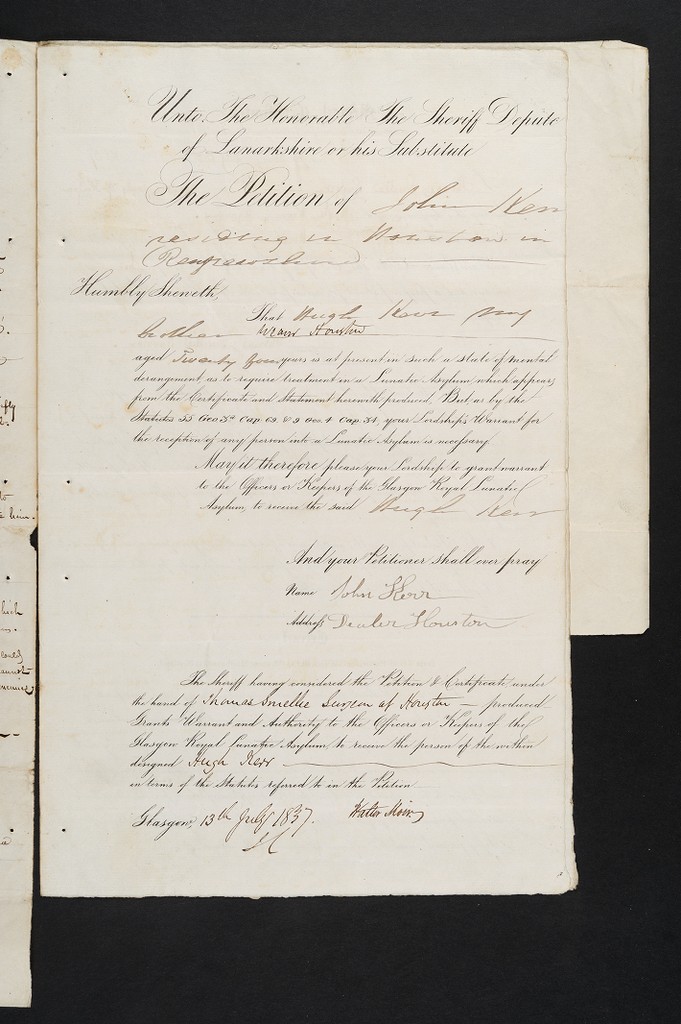 Unto The Honorable The Sheriff Depute
of Lanarkshire or his Substitute
The Petition of John Kerr
residing in Houston in
Renfrewshire
Humbly Sheweth,
That Hugh Kerr my
brother Weaver Houston
aged Twenty four years is at present in such a state of mental
derangement as to require treatment in a Lunatic Asylum which appears
from the Certificate and Statement herewith produced. But as by the
Statutes 55 Geo. 3d Cap. 69. & 9 Geo. 4 Cap. 34, your Lordship's Warrant for
the reception of any person into a Lunatic Asylum is necessary.
May it therefore please your Lordship to grant warrant
to the Officers or Keepers of the Glasgow Royal Lunatic
Asylum, to receive the said Hugh Kerr
And your Petitioner shall ever pray
Name John Kerr
Address Dealer Houston
The Sheriff having considered the Petition & Certificate under
the hand of Thomas Smellie Surgeon at Houston — produced
Grants Warrant and Authority to the Officers or Keepers of the
Glasgow Royal Lunatic Asylum, to receive the person of the within
designed Hugh Kerr
in terms of the Statutes referred to in the Petition
Glasgow, 13th July 1837. Walter Moir